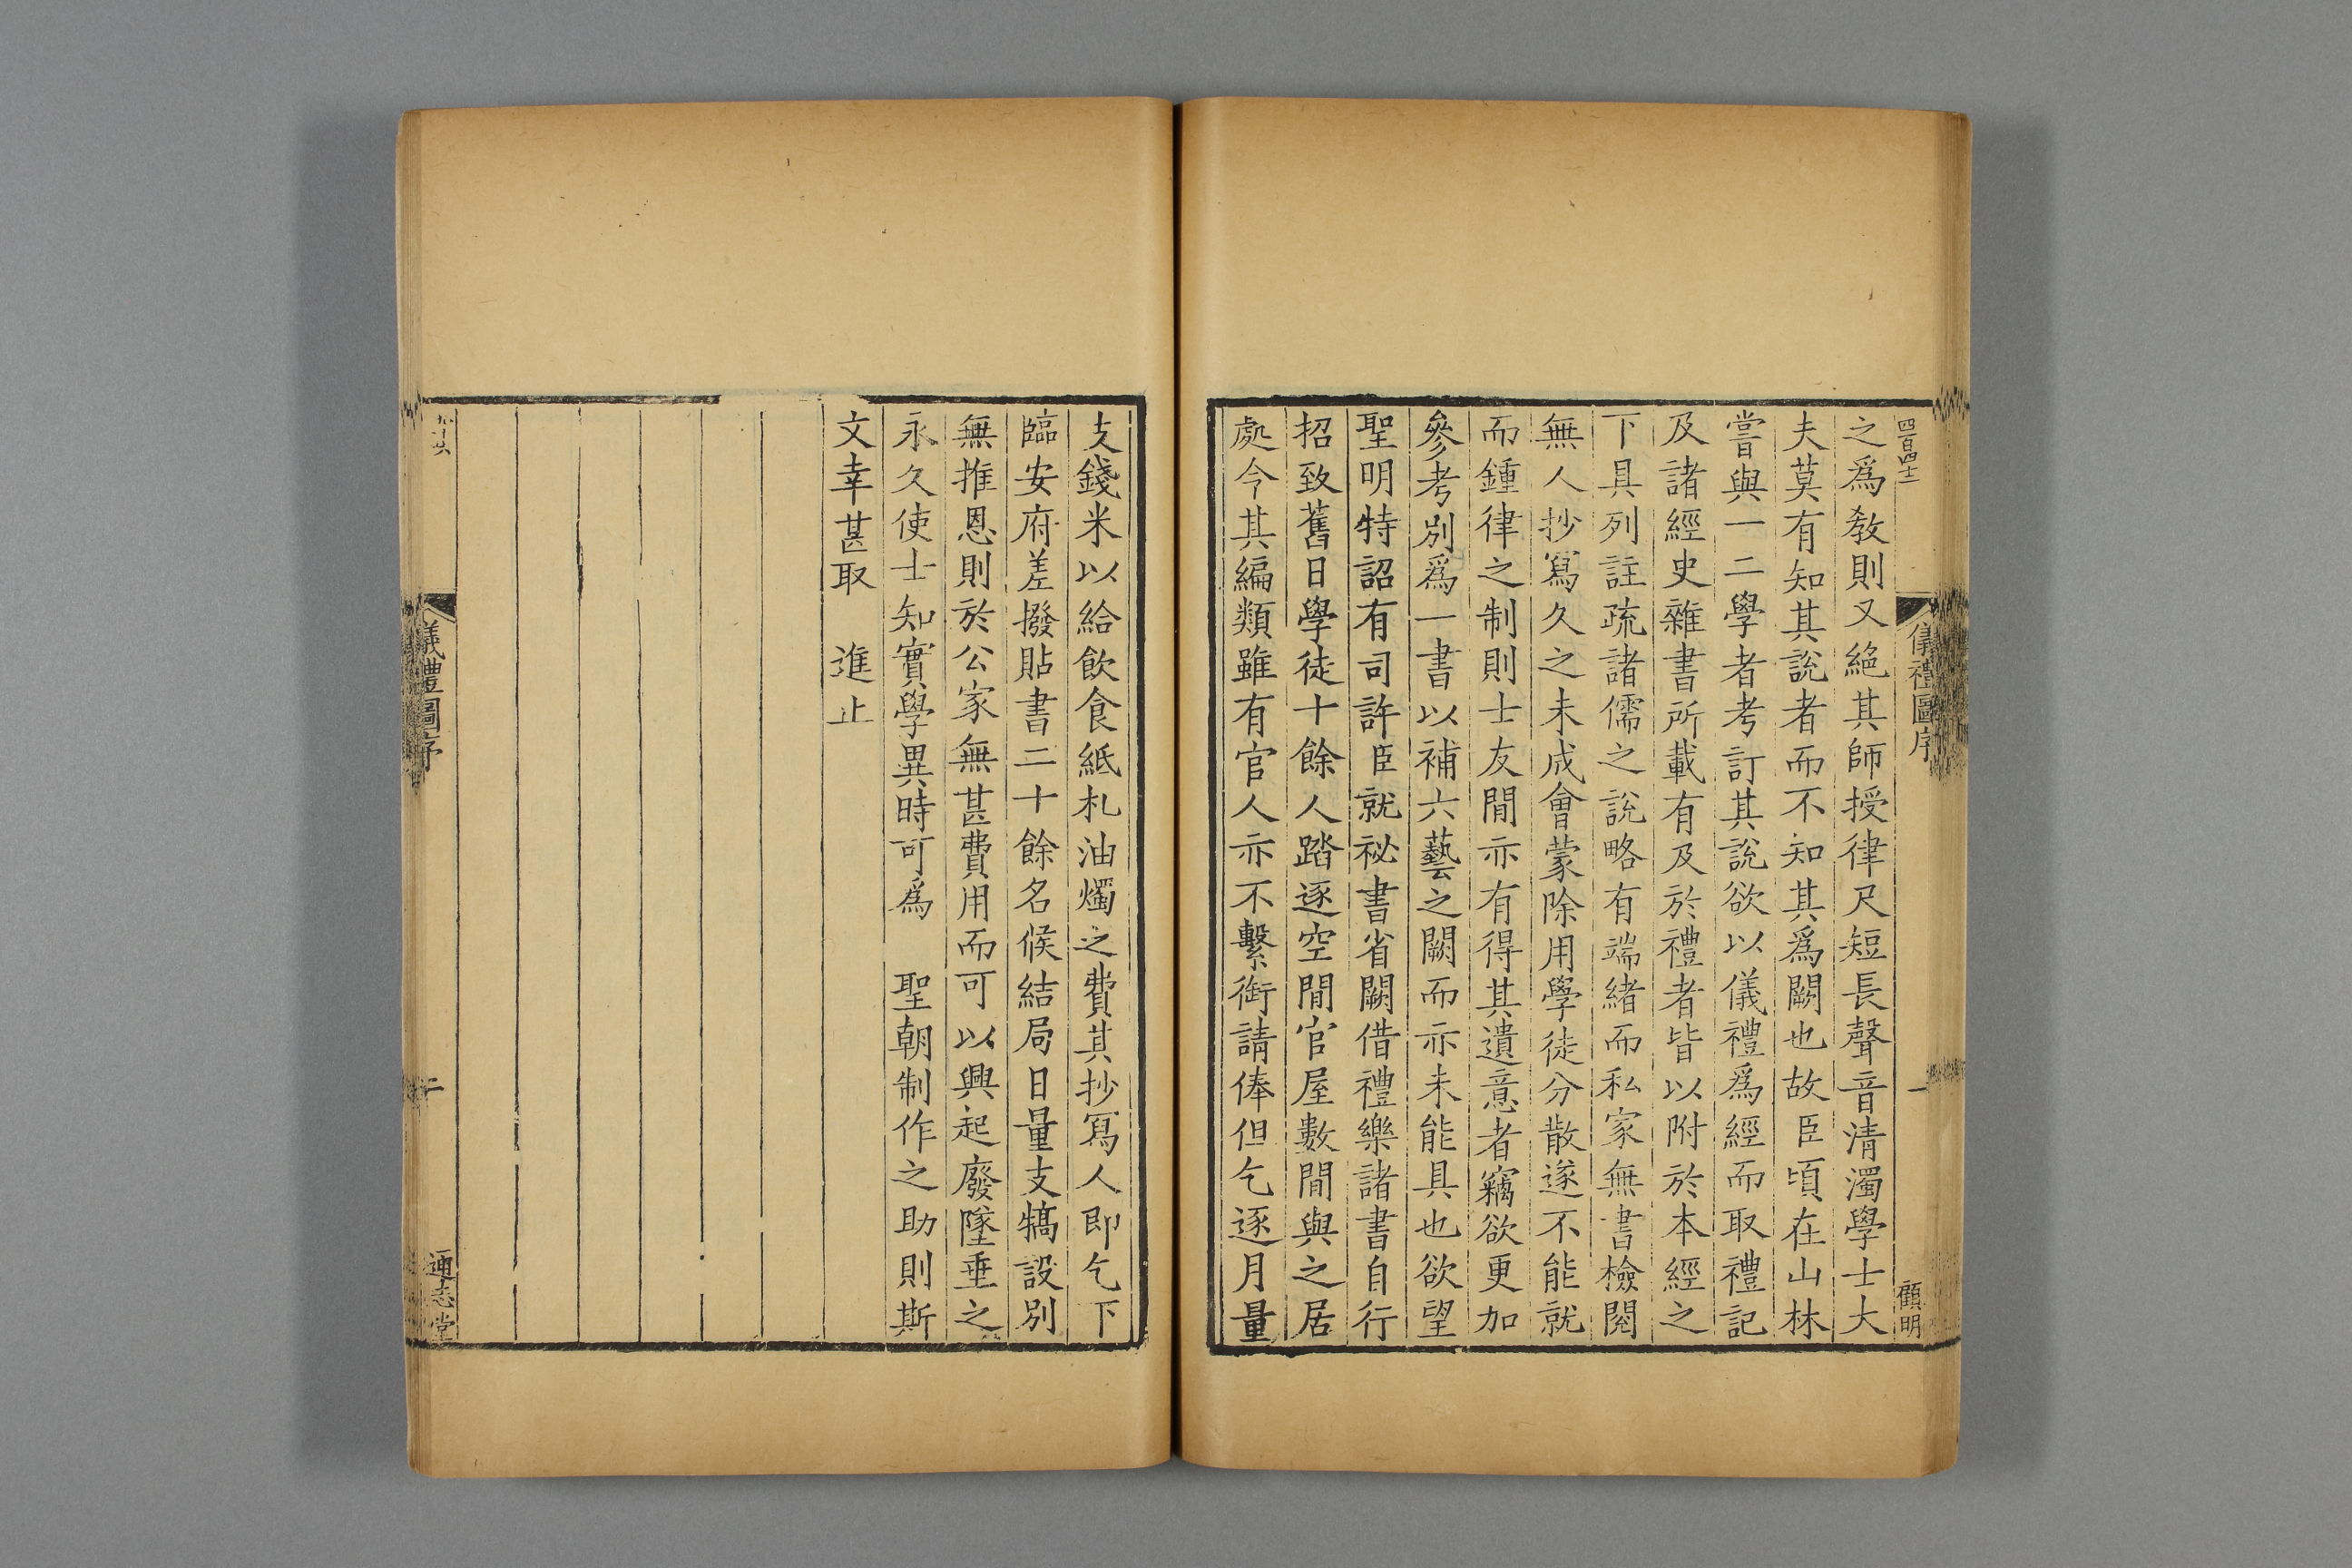 四百四十二
儀禮圖序
一
顧明
之爲敎則又絕其師授律尺短長聲音清濁學士大
夫莫有知其說者而不知其爲闕也故臣頃在山林
嘗與一二學者考訂其說欲以儀禮爲經而取禮記
及諸經史雜書所載有及於禮者皆以附於本經之
下具列註疏諸儒之說略有端緒而私家無書檢閱
無人抄寫久之未成會蒙除用學徒分散遂不能就
而鍾律之制則士友間亦有得其遺意者竊欲更加
參考別爲一書以補六藝之闕而亦未能具也欲望
聖明特詔有司許臣就祕書省關借禮樂諸書自行
招致舊日學徒十餘人踏逐空閒官屋數間與之居
處今其編類雖有官人亦不繫銜請俸但乞逐月量
支錢米以給飲食紙札油燭之費其抄寫人即乞下
臨安府差撥貼書二十餘名候結局日量支犒設別
無推恩則於公家無甚費用而可以興起廢墜垂之
永久使士知實學異時可爲　聖朝制作之助則斯
文幸甚取　進止
儀禮圖序
二
通志堂